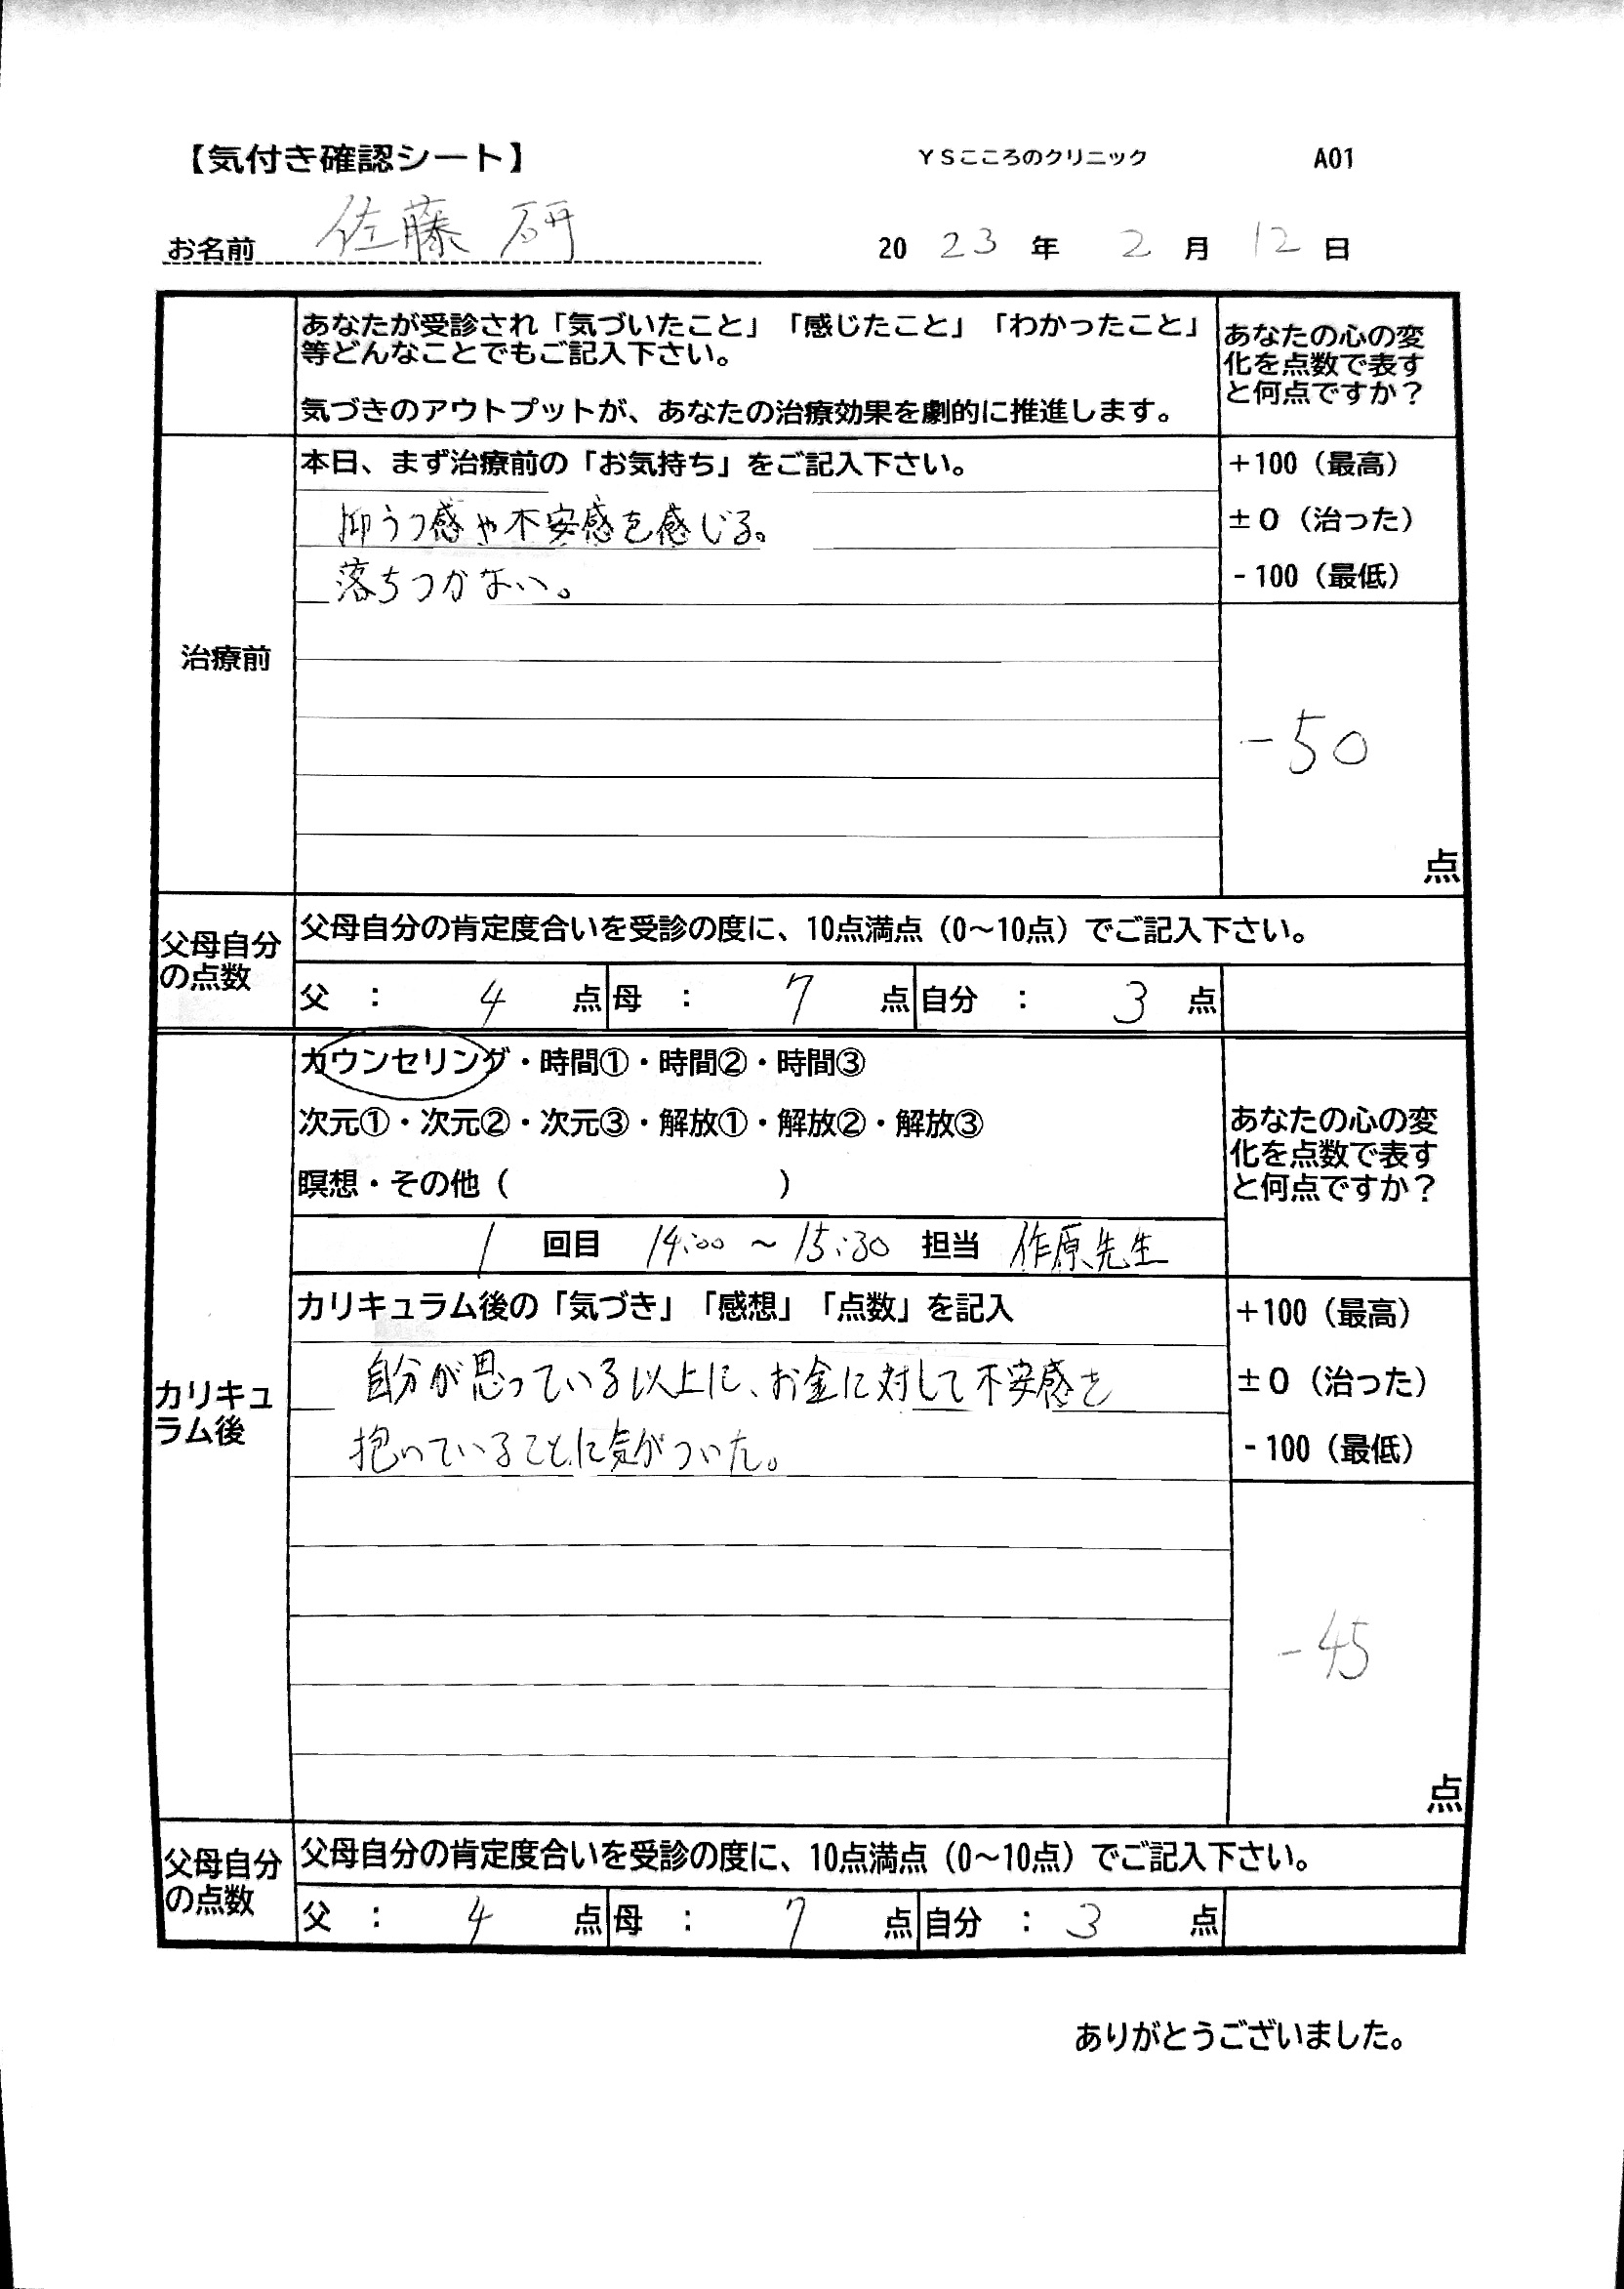 【気付き確認シート】 YSこころのクリニック A01
お名前 佐藤 研 2023年 2月 12日
あなたが受診され「気づいたこと」「感じたこと」「わかったこと」
等どんなことでもご記入下さい。
気づきのアウトプットが、あなたの治療効果を劇的に推進します。
あなたの心の変
化を点数で表す
と何点ですか？
治療前
本日、まず治療前の「お気持ち」をご記入下さい。
抑うつ感や不安感を感じる。
落ちつかない。
+100（最高）
±0（治った）
-100（最低）
-50
点
父母自分
の点数
父母自分の肯定度合いを受診の度に、10点満点（0～10点）でご記入下さい。
父 ： 4 点 母 ： 7 点 自分 ： 3 点
カリキュ
ラム後
カウンセリング・時間①・時間②・時間③
次元①・次元②・次元③・解放①・解放②・解放③
瞑想・その他（ ）
あなたの心の変
化を点数で表す
と何点ですか？
1 回目 14:00 ～ 15:30 担当 作原先生
カリキュラム後の「気づき」「感想」「点数」を記入
自分が思っている以上に、お金に対して不安感を
抱いていることに気がついた。
+100（最高）
±0（治った）
-100（最低）
-45
点
父母自分
の点数
父母自分の肯定度合いを受診の度に、10点満点（0～10点）でご記入下さい。
父 ： 4 点 母 ： 7 点 自分 ： 3 点
ありがとうございました。